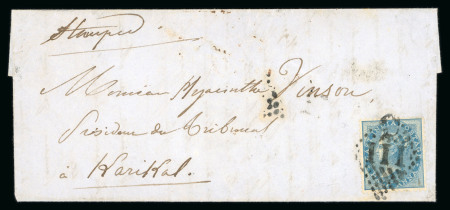 Stamped
Monsieur Hyacinthe Vinson
Président du Tribunal
à Karikal.